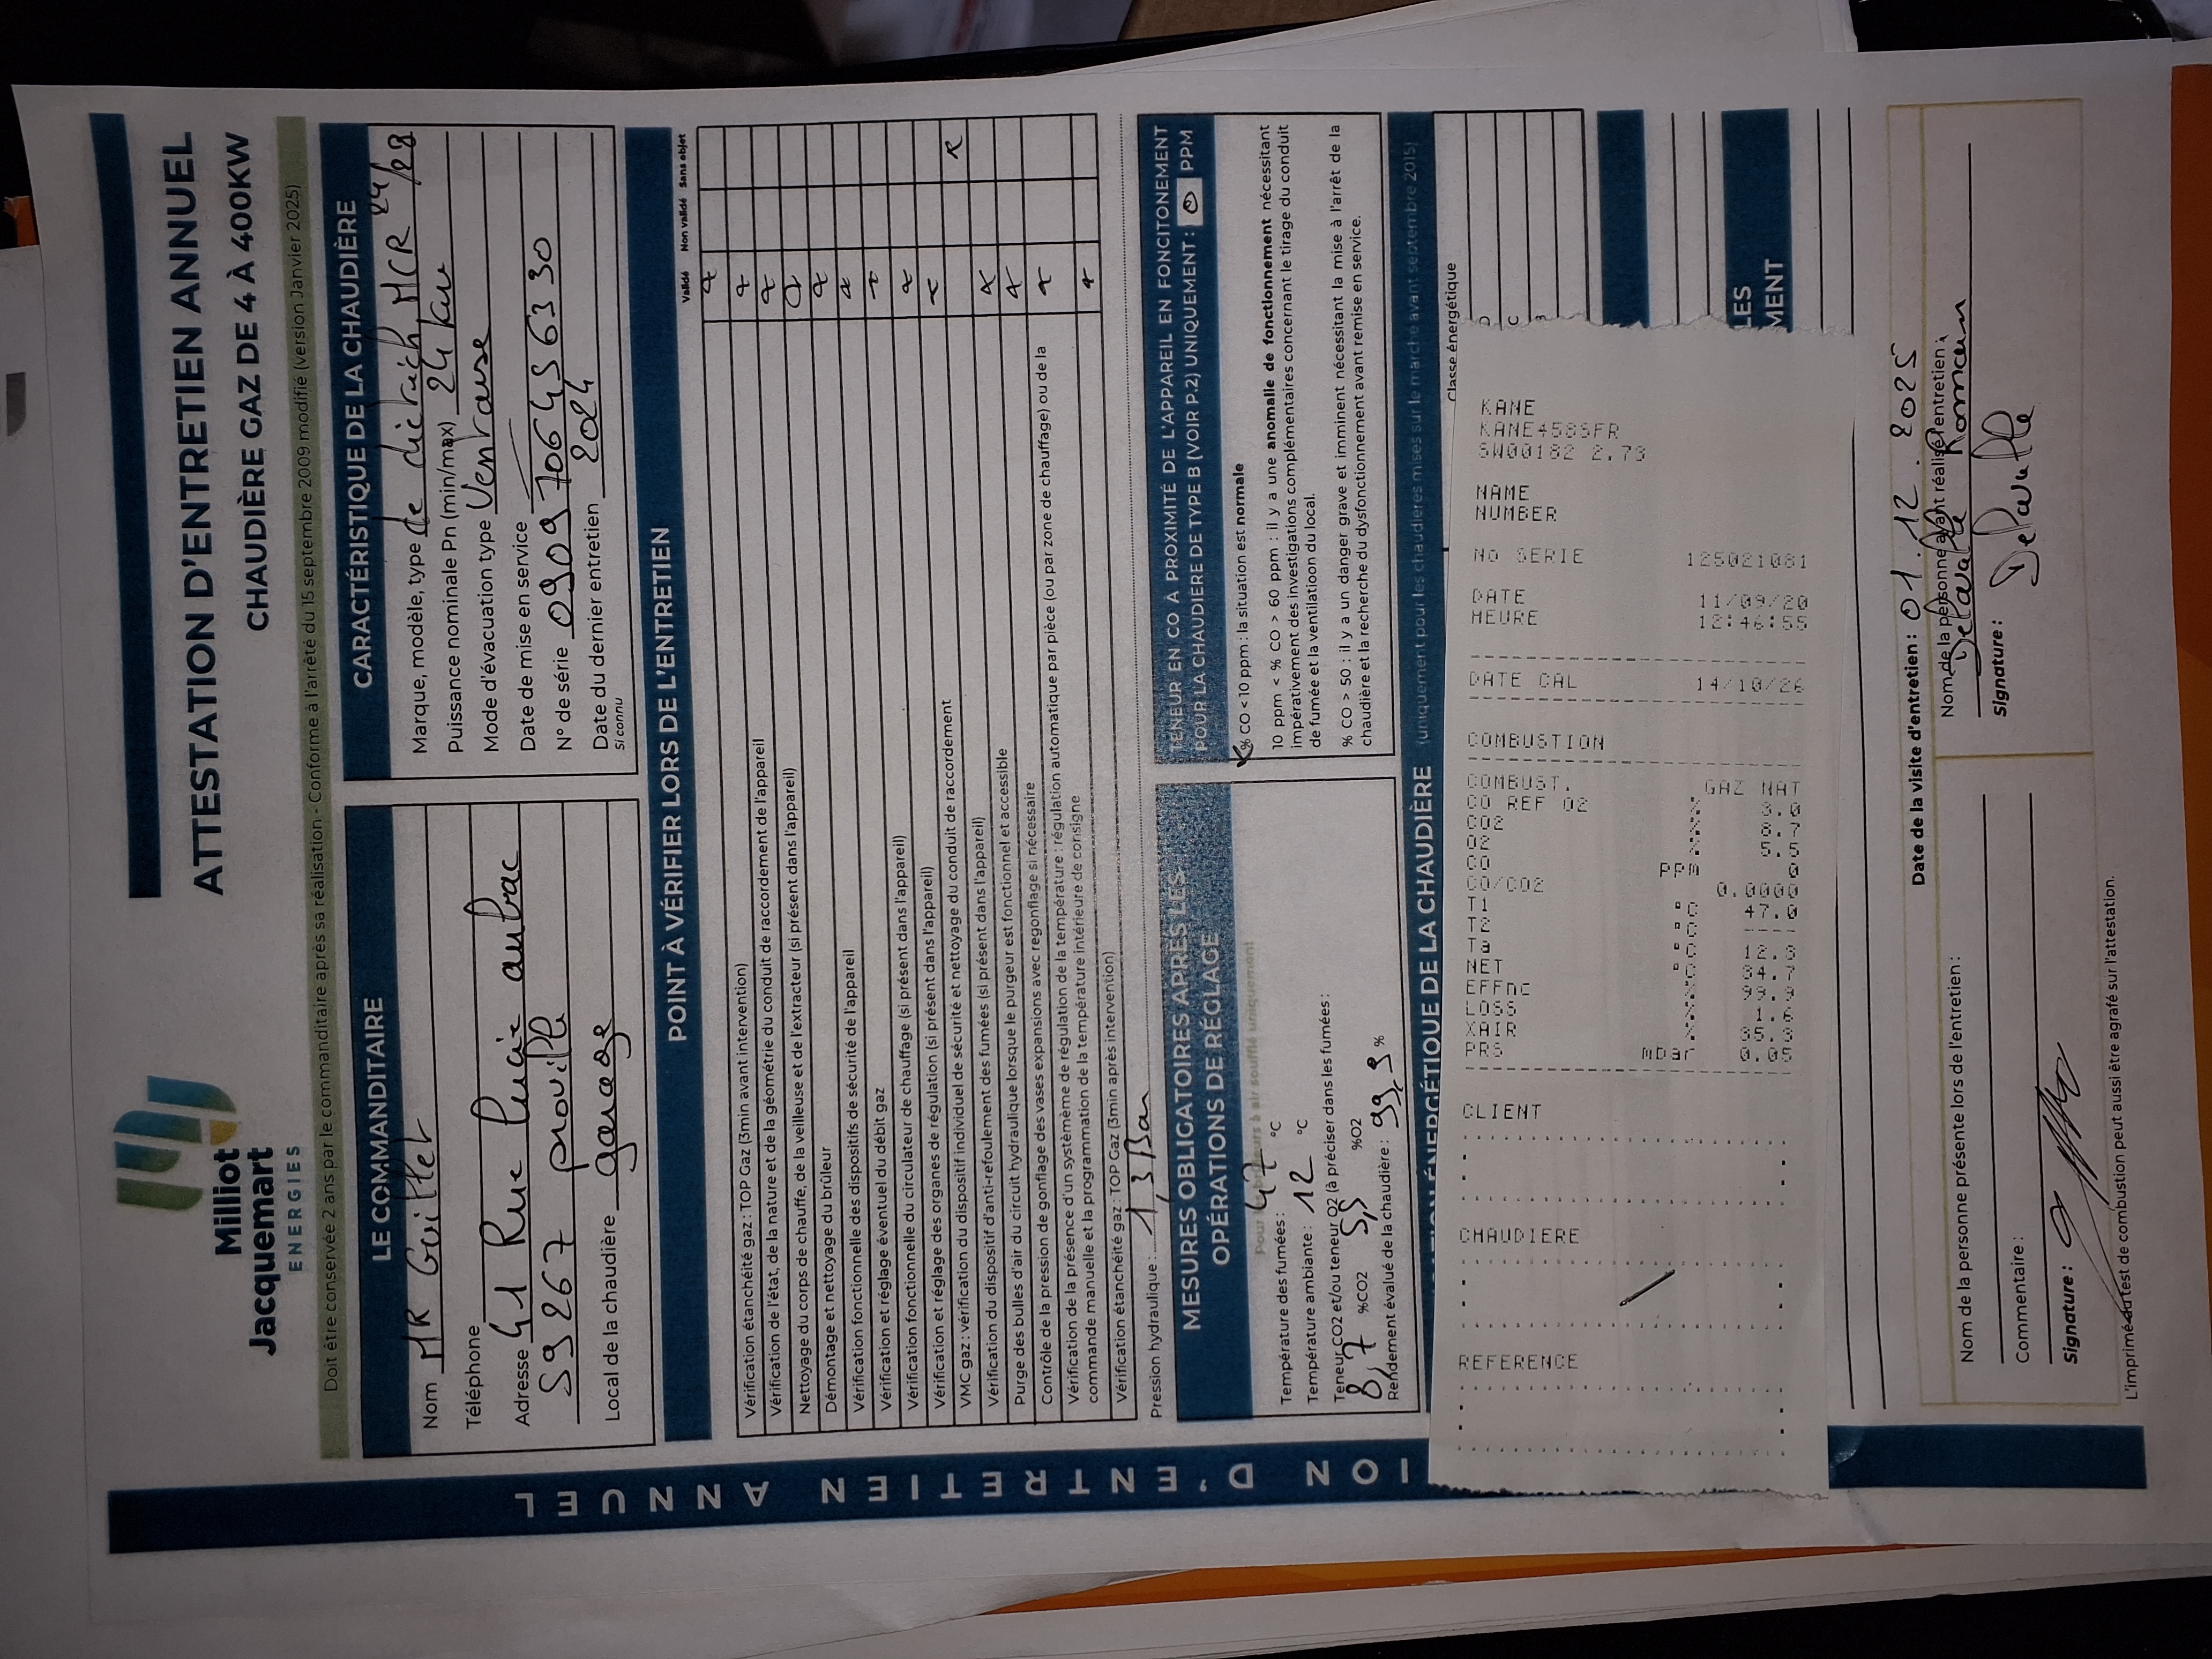 Milliot
Jacquemart
ENERGIES
ATTESTATION D'ENTRETIEN ANNUEL
CHAUDIÈRE GAZ DE 4 À 400KW
Doit être conservée 2 ans par le commanditaire après sa réalisation - Conforme à l'arrêté du 15 septembre 2009 modifié (version Janvier 2025)
LE COMMANDITAIRE
Nom MR Guillet
Téléphone
Adresse 41 Rue Lucie aubrac
59267 proville
Local de la chaudière garage
CARACTÉRISTIQUE DE LA CHAUDIÈRE
Marque, modèle, type de dietrich MCR 24/28
Puissance nominale Pn (min/max) 24 kw
Mode d'évacuation type Ventouse
Date de mise en service
N° de série
Date du dernier entretien 2024
si connu
POINT À VÉRIFIER LORS DE L'ENTRETIEN
Validé Non validé Sans objet
Vérification étanchéité gaz : TOP Gaz (3min avant intervention)
Vérification de l'état, de la nature et de la géométrie du conduit de raccordement de l'appareil
Nettoyage du corps de chauffe, de la veilleuse et de l'extracteur (si présent dans l'appareil)
Démontage et nettoyage du brûleur
Vérification fonctionnelle des dispositifs de sécurité de l'appareil
Vérification et réglage éventuel du débit gaz
Vérification fonctionnelle du circulateur de chauffage (si présent dans l'appareil)
Vérification et réglage des organes de régulation (si présent dans l'appareil)
VMC gaz : vérification du dispositif individuel de sécurité et nettoyage du conduit de raccordement
Vérification du dispositif d'anti-refoulement des fumées (si présent dans l'appareil)
Purge des bulles d'air du circuit hydraulique lorsque le purgeur est fonctionnel et accessible
Contrôle de la pression de gonflage des vases expansions avec regonflage si nécessaire
Vérification de la présence d'un système de régulation de la température : régulation automatique par pièce (ou par zone de chauffage) ou de la
commande manuelle et la programmation de la température intérieure de consigne
Vérification étanchéité gaz : TOP Gaz (3min après intervention)
Pression hydraulique : 1,3 Bar
MESURES OBLIGATOIRES APRÈS LES
OPÉRATIONS DE RÉGLAGE
Température des fumées : 47 °C
Température ambiante : 12 °C
Teneur CO2 et/ou teneur O2 (à préciser dans les fumées :
8,7 %CO2 5,5 %O2
Rendement évalué de la chaudière : 99,9 %
TENEUR EN CO A PROXIMITÉ DE L'APPAREIL EN FONCITONEMENT
POUR LA CHAUDIERE DE TYPE B (VOIR P.2) UNIQUEMENT : 0 PPM
% CO < 10 ppm : la situation est normale
10 ppm < % CO > 60 ppm : il y a une anomalie de fonctionnement nécessitant
impérativement des investigations complémentaires concernant le tirage du conduit
de fumée et la ventilatioon du local.
% CO > 50 : il y a un danger grave et imminent nécessitant la mise à l'arrêt de la
chaudière et la recherche du dysfonctionnement avant remise en service.
ÉNERGÉTIQUE DE LA CHAUDIÈRE (uniquement pour les chaudières mises sur le marché avant septembre 2015)
Classe énergétique
D
C
LES
MENT
KANE
KANE458SFR
SW00182 2.73
NAME
NUMBER
NO SERIE 125021081
DATE 11/09/20
HEURE 12:46:55
DATE CAL 14/10/26
COMBUSTION
COMBUST. GAZ NAT
CO REF O2 % 3.0
CO2 % 8.7
O2 % 5.5
CO ppm 0
CO/CO2 0.0000
T1 °C 47.0
T2 °C ----
Ta °C 12.3
NET °C 34.7
EFFnc % 99.9
LOSS % 1.6
XAIR % 35.8
PRS mbar 0.05
CLIENT
CHAUDIERE
REFERENCE
Date de la visite d'entretien : 01.12.2025
Nom de la personne présente lors de l'entretien :
Commentaire :
Signature :
Nom de la personne ayant réalisé l'entretien :
Romain
Signature :
L'imprimé du test de combustion peut aussi être agrafé sur l'attestation.
ION D'ENTRETIEN ANNUEL